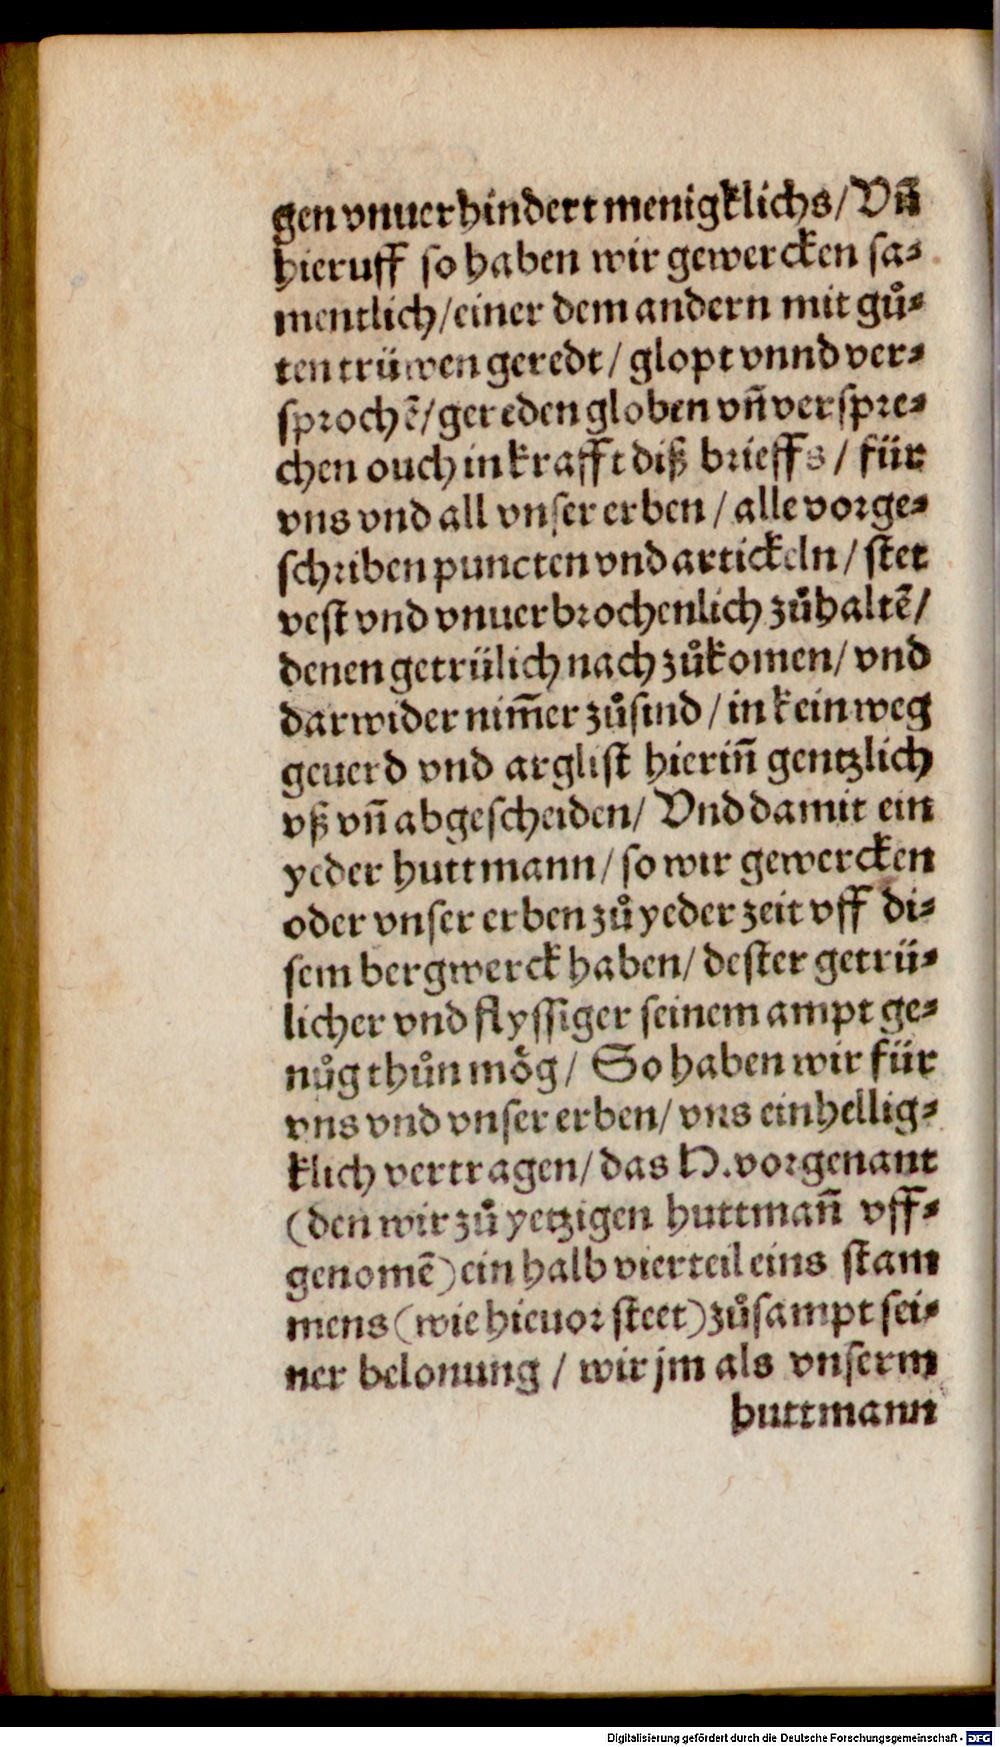 gen vnuerhindert menigklichs/ Vñ
hieruff so haben wir gewercken sa⸗
mentlich/ einer dem andern mit gů⸗
ten trüwen geredt/ glopt vnnd ver⸗
sprochē/ gereden globen vñ verspre⸗
chen ouch in krafft diß brieffs/ für
vns vnd all vnser erben/ alle vorge⸗
schriben puncten vnd artickeln/ stet
vest vnd vnuerbrochenlich zůhaltē/
denen getrülich nach zůkomen/ vnd
darwider nim̄er zůsind/ in kein weg
geuerd vnd arglist hierin̄ gentzlich
vß vñ abgescheiden/ Vnd damit ein
yeder huttmann/ so wir gewercken
oder vnser erben zů yeder zeit vff di⸗
sem bergwerck haben/ dester getrü⸗
licher vnd flyssiger seinem ampt ge⸗
nůg thůn mög/ So haben wir für
vns vnd vnser erben/ vns einhellig⸗
klich vertragen/ das N. vorgenant
(den wir zů yetzigen huttman̄ vff⸗
genomē) ein halb vierteil eins stam
mens (wie hieuor steet) zůsampt sei⸗
ner belonung/ wir jm als vnserm
huttmann
Digitalisierung gefördert durch die Deutsche Forschungsgemeinschaft - DFG